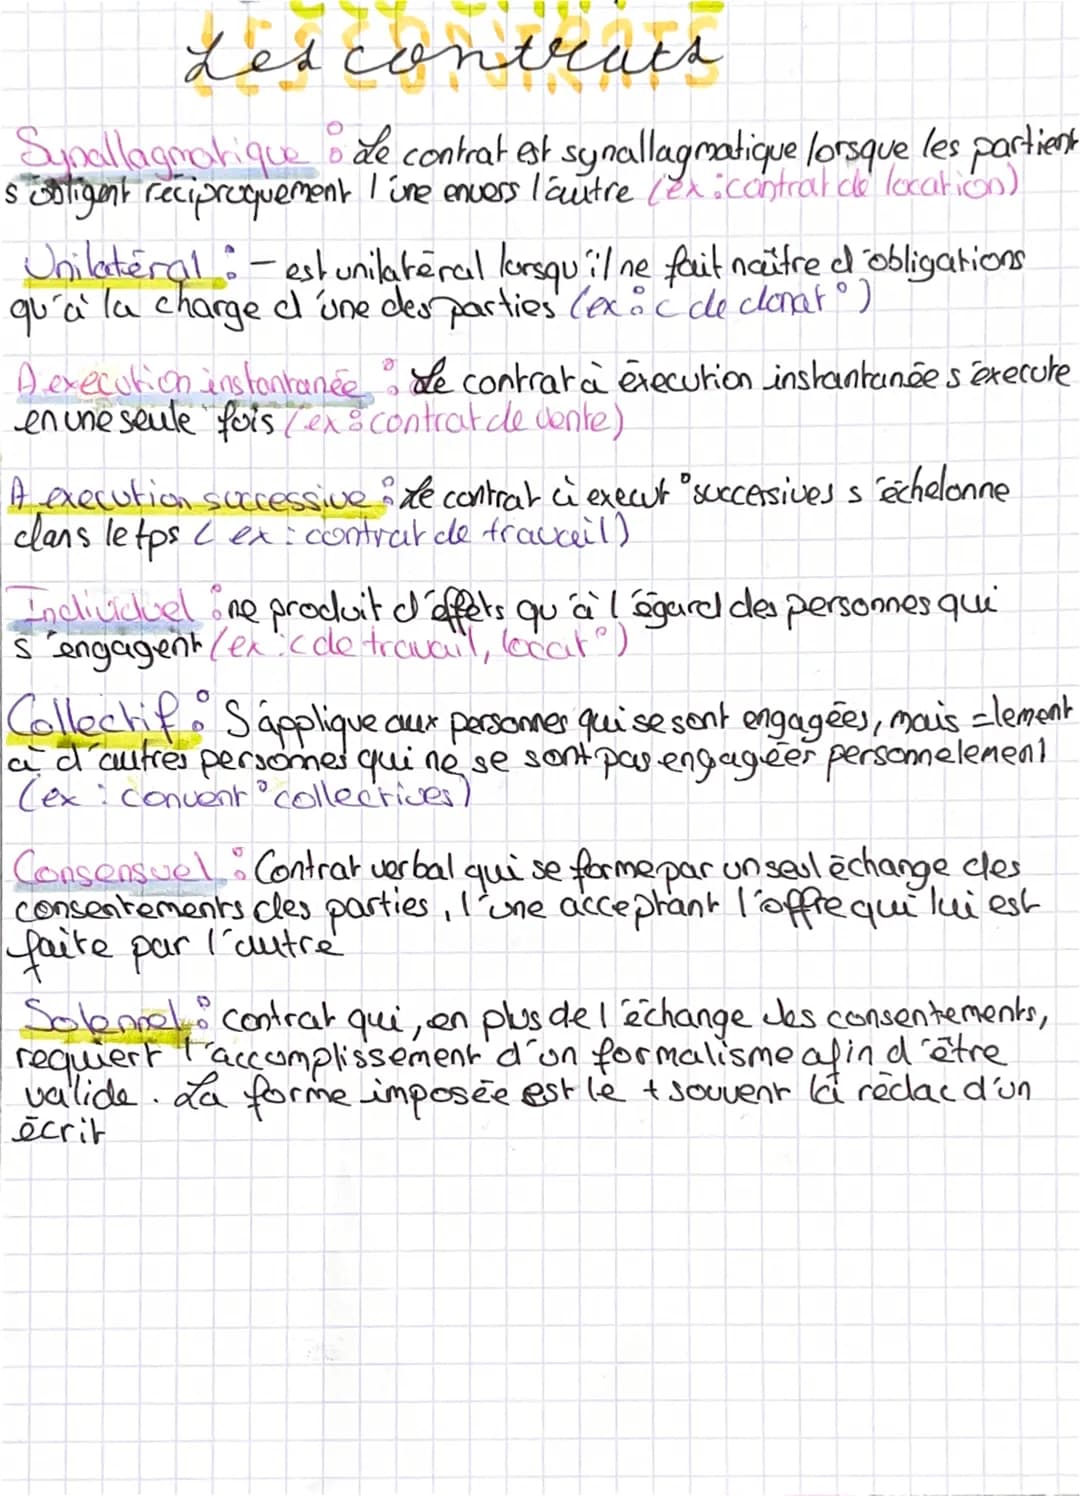 Les contrats
Synallagmatique : Le contrat est synallagmatique lorsque les partient
s'obligent réciproquement l'une envers l'autre (ex : contrat de location)
Unilatéral : - est unilatéral lorsqu'il ne fait naître d'obligations
qu'à la charge d'une des parties (ex : c de donat°)
A execution instantanée : Le contrat à éxecution instantanée s'éxecute
en une seule fois (ex : contrat de vente)
A execution successive : Le contrat à execut° successives s'échelonne
dans le tps (ex : contrat de travail)
Individuel : ne produit d'effets qu'à l'égard des personnes qui
s'engagent (ex : c de travail, locat°)
Collectif : S'applique aux personnes qui se sont engagées, mais =lement
à d'autres personnes qui ne se sont pas engagées personnelement
(ex : convent° collectives)
Consensuel : Contrat verbal qui se forme par un seul échange des
consentements des parties, l'une acceptant l'offre qui lui est
faite par l'autre
Solennel : contrat qui, en plus de l'échange des consentements,
requiert l'accomplissement d'un formalisme afin d'être
valide. La forme imposée est le + souvent la rédac d'un
écrit